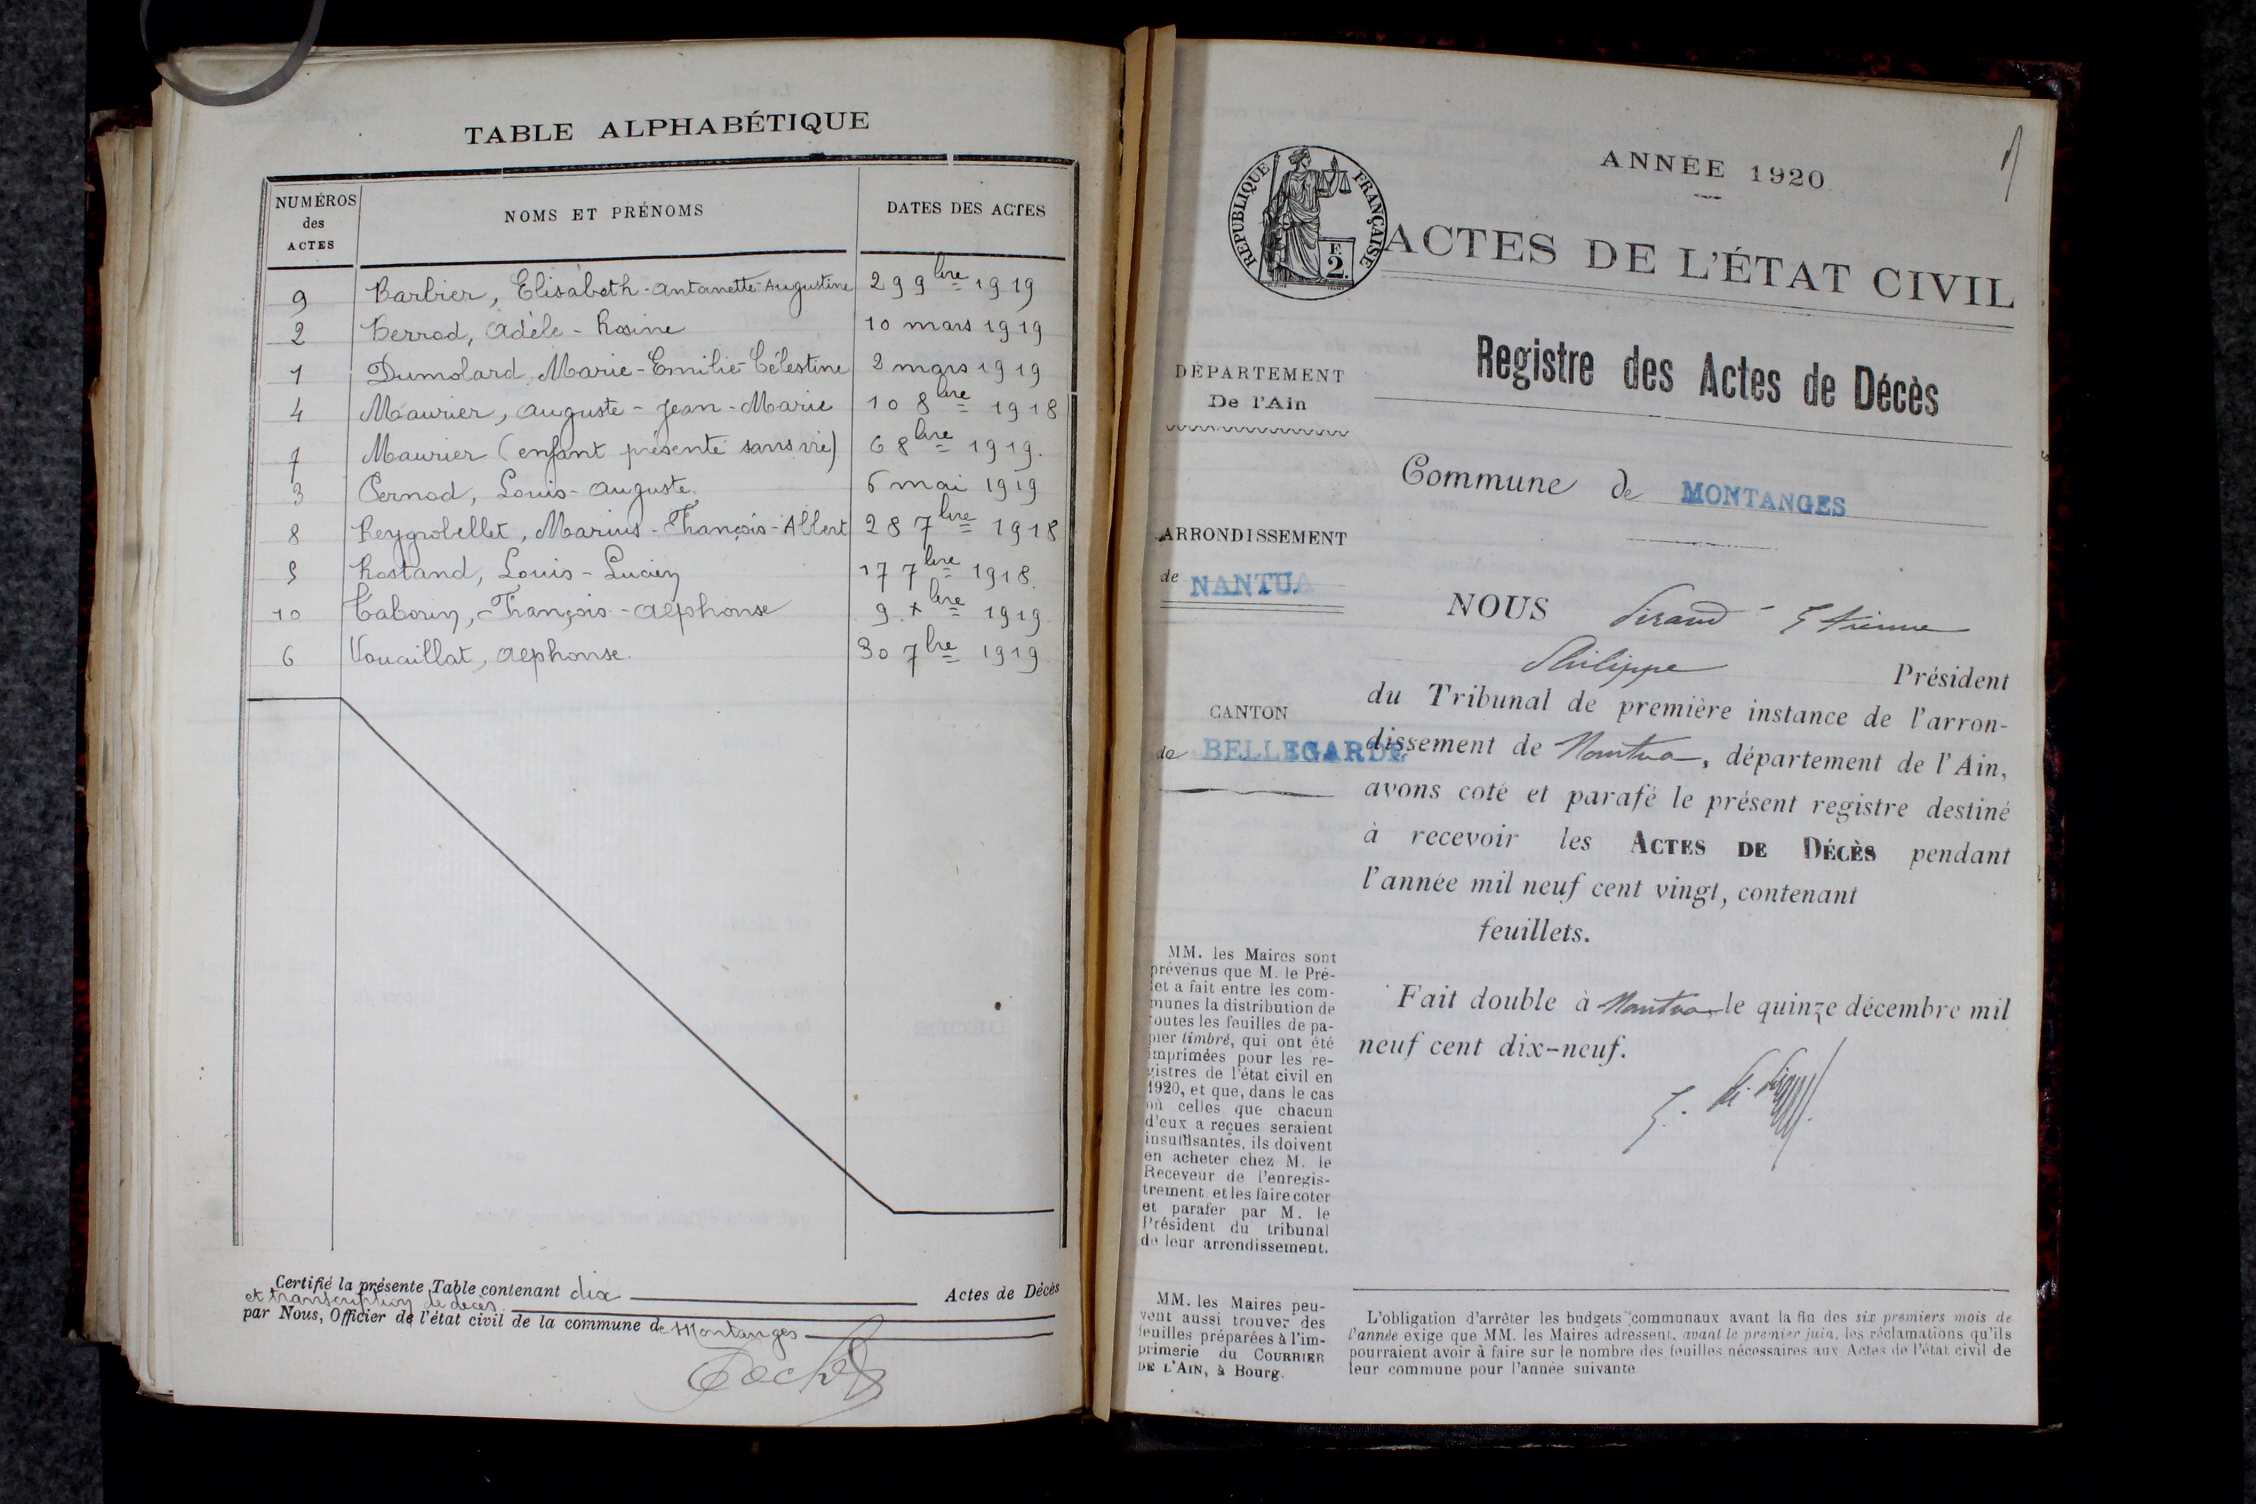 TABLE ALPHABÉTIQUE
NUMÉROS des ACTES NOMS ET PRÉNOMS DATES DES ACTES
9 Barbier, Elisabeth-Antoinette-Augustine 29 9bre 1919
2 Berrod, Adèle-Rosine 10 mars 1919
1 Dumolard, Marie-Emilie-Célestine 2 mars 1919
4 Maurier, Auguste-Jean-Marie 10 8bre 1918
7 Maurier (enfant présenté sans vie) 6 8bre 1919.
3 Pernod, Louis-Auguste. 6 mai 1919
8 Reygrobellet, Marius-François-Albert 28 7bre 1918
5 Rostand, Louis-Lucien 17 7bre 1918.
10 Tabouin, François-Alphonse 9 xbre 1919
6 Vouaillat, Alphonse. 30 7bre 1919
Certifié la présente Table contenant dix Actes de Décès
et transcription de décès.
par Nous, Officier de l'état civil de la commune de Montanges
ANNÉE 1920
RÉPUBLIQUE FRANÇAISE
E
2.
ACTES DE L'ÉTAT CIVIL
Registre des Actes de Décès
DÉPARTEMENT
De l'Ain
Commune de MONTANGES
ARRONDISSEMENT
de NANTUA
NOUS Etienne
Philippe Président
du Tribunal de première instance de l'arron-
dissement de Nantua, département de l'Ain,
avons coté et parafé le présent registre destiné
à recevoir les ACTES DE DÉCÈS pendant
l'année mil neuf cent vingt, contenant
feuillets.
Fait double à Nantua le quinze décembre mil
neuf cent dix-neuf.
CANTON
de BELLEGARDE
MM. les Maires sont
prévenus que M. le Pré-
fet a fait entre les com-
munes la distribution de
toutes les feuilles de pa-
pier timbré, qui ont été
imprimées pour les re-
gistres de l'état civil en
1920, et que, dans le cas
où celles que chacun
d'eux a reçues seraient
insuffisantes, ils doivent
en acheter chez M. le
Receveur de l'enregis-
trement et les faire coter
et parafer par M. le
Président du tribunal
de leur arrondissement.
MM. les Maires peu-
vent aussi trouver des
feuilles préparées à l'im-
primerie du COURRIER
DE L'AIN, à Bourg.
L'obligation d'arrêter les budgets communaux avant la fin des six premiers mois de
l'année exige que MM. les Maires adressent, avant le premier juin, les réclamations qu'ils
pourraient avoir à faire sur le nombre des feuilles nécessaires aux Actes de l'état civil de
leur commune pour l'année suivante